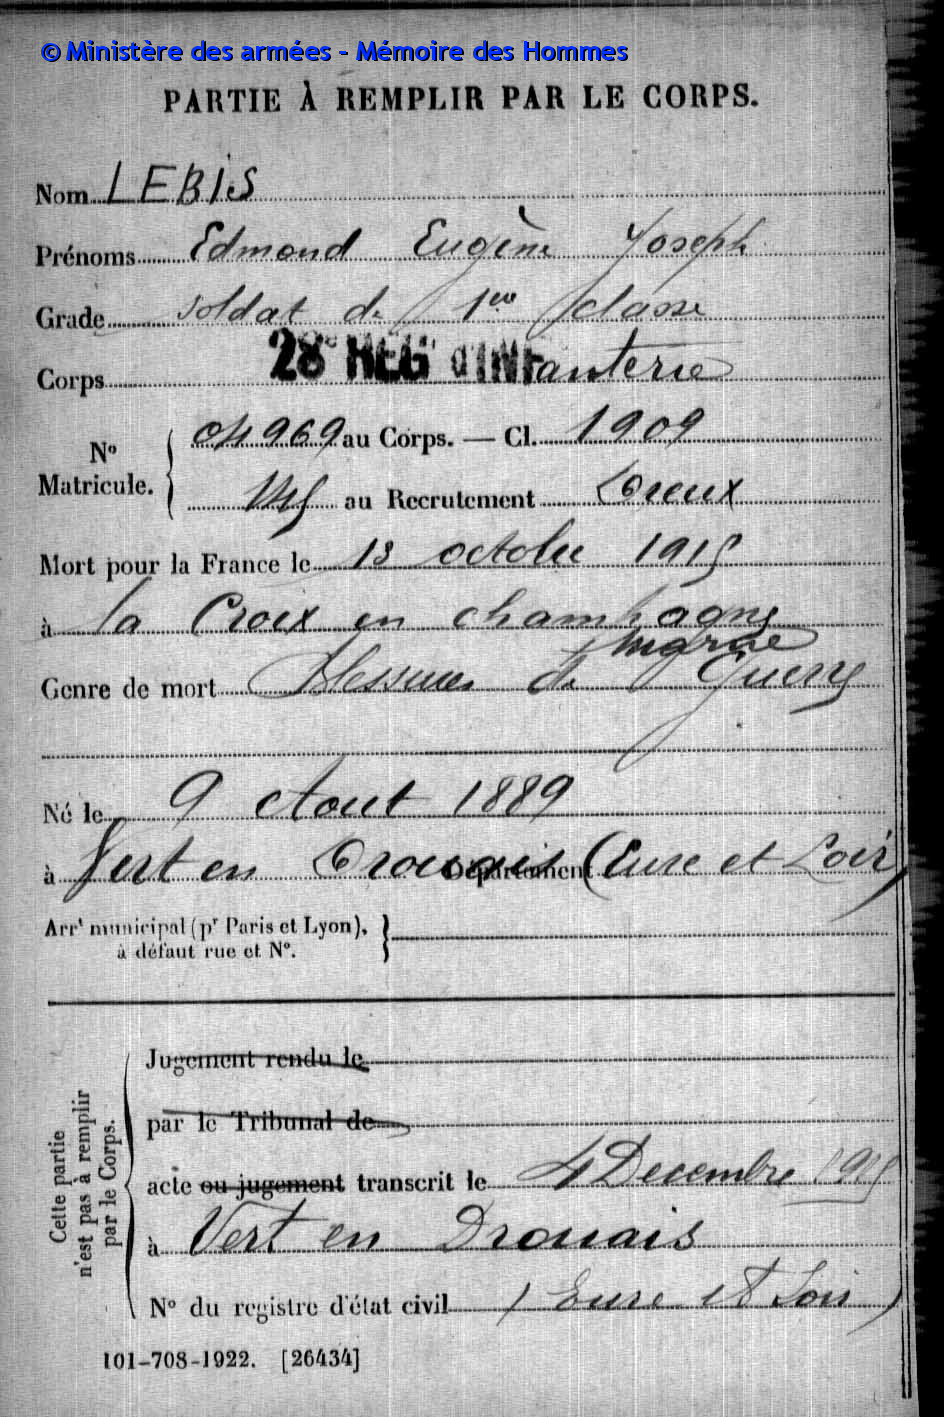 © Ministère des armées - Mémoire des Hommes
PARTIE À REMPLIR PAR LE CORPS.
Nom LEBIS
Prénoms Edmond Eugène Joseph
Grade soldat de 1ère classe
Corps 28e REGt d'INFanterie
No Matricule. { 04969 au Corps. — Cl. 1909
au Recrutement Dreux
Mort pour la France le 13 octobre 1915
à la Croix en champagne
Marne
Genre de mort Blessures de Guerre
Né le 9 Aout 1889
à Vert en Drouais Département (Eure et Loir)
Arrt municipal (pr Paris et Lyon), }
à défaut rue et No.
Cette partie n'est pas à remplir par le Corps.
Jugement rendu le
par le Tribunal de
acte ou jugement transcrit le 4 Decembre 1915
à Vert en Drouais
No du registre d'état civil (Eure et Loir)
101-708-1922. [26434]